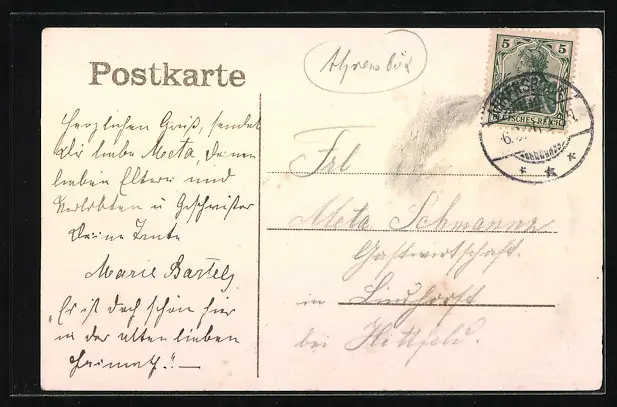 Postkarte
Ahrensbök
5 5
DEUTSCHES REICH
Herzlichen Gruß, sendet
Dir liebe Meta, Deinen
lieben Eltern und
Verlobten u Geschwister
Deine Tante
Marie Bartels
"Es ist doch schön hier
in der alten lieben
Heimath."—
Frl
Meta Schmanns
Gastwirtschaft.
in Lindhorst
bei Hittfeld.